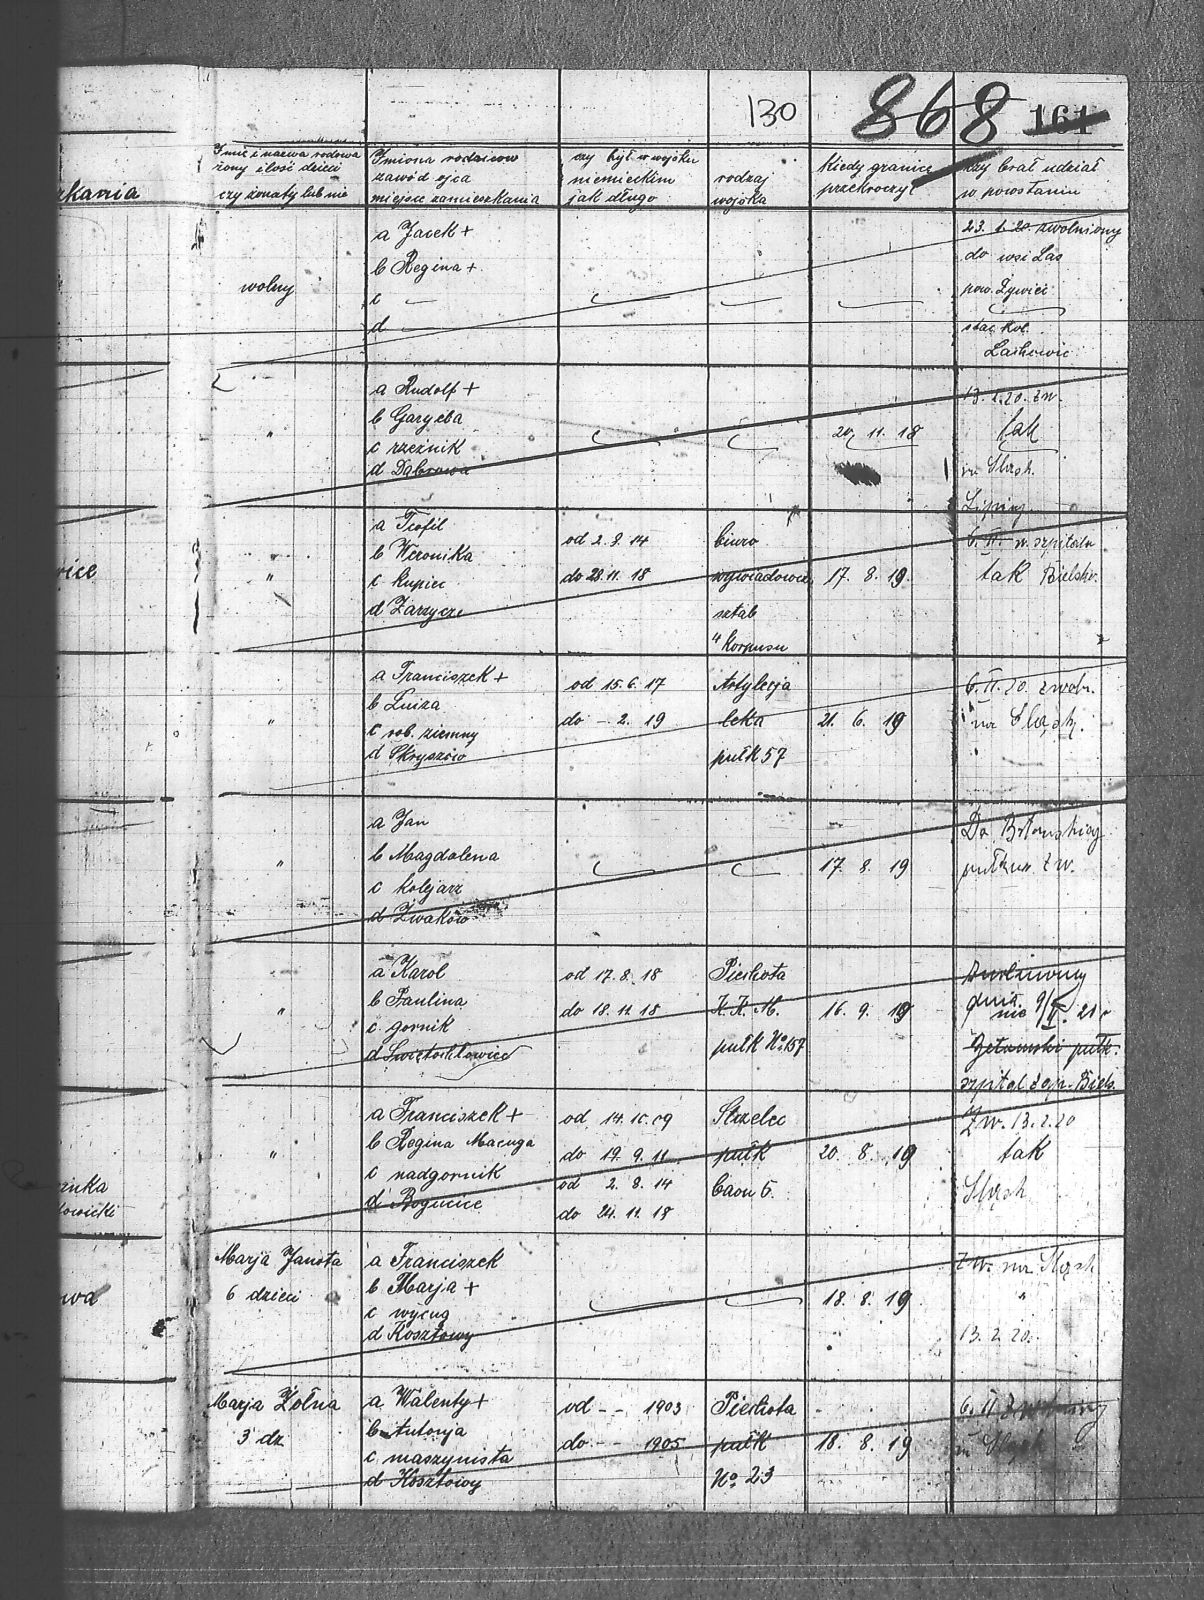 130
868 161
Imię i nazwa rodowa
żony ilość dzieci
czy żonaty lub nie
Imiona rodziców
zawód ojca
miejsce zamieszkania
czy był w wojsku
niemieckim
jak długo
rodzaj
wojska
kiedy granicę
przekroczył
czy brał udział
w powstaniu
zkania
wolny
a Jacek +
b Regina +
c —
d —
23. 1. 20 zwolniony
do wsi Las
pow. Żywiec
stac. kol.
Lachowic
"
a Rudolf +
b Garycba
c rzeźnik
d Dąbrowa
20. 11. 18
13. 2. 20. zw.
tak
na Śląsk
Lipiny
wice
"
a Teofil
b Weronika
c kupiec
d Zarzycze
od 2. 8. 14
do 28. 11. 18
biuro
wywiadowcze
sztab
4 Korpusu
17. 8. 19.
6. II. w szpitalu
tak Bielsko.
"
a Franciszek +
b Luiza
c rob. ziemny
d Skryszów
od 15. 6. 17
do - 2. 19
Artylerja
lekka
pułk 57
21. 6. 19
6. II. 20. zwoln.
na Śląsk.
"
a Jan
b Magdalena
c kolejarz
d Żwaków
17. 8. 19
Do Bytomskiego
pułku zw.
"
a Karol
b Paulina
c gornik
d Świętochłowice
od 17. 8. 18
do 18. 11. 18
Piechota
K. K. M.
pułk No 157
16. 9. 19
dnia 9/II. 21 r
nie
Bytomski pułk.
szpital zap. Biels.
"
a Franciszek +
b Regina Macuga
c nadgornik
d Bogucice
od 14. 10. 09
do 19. 9. 11
od 2. 8. 14
do 24. 11. 18
Strzelec
pułk
baon 6.
20. 8. 19
Zw. 13. 2. 20
tak
Śląsk
Marja Janota
6 dzieci
a Franciszek
b Marja +
c wycug
d Kosztowy
18. 8. 19
Zw. na Śląsk
"
13. 2. 20.
wa
Marja Żołna
3 dz
a Walenty +
b Antonja
c maszynista
d Kosztowy
od - - 1903
do - - 1905
Piechota
pułk
No. 23
18. 8. 19
6. II
na Śląsk